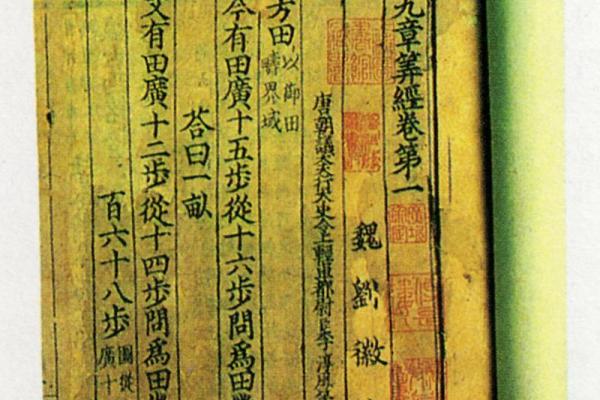 九章筭經卷第一
魏劉徽
唐朝議大夫行太史令上輕車都尉臣李淳風
方田以御田
疇界域
今有田廣十五步從十六步問為田
荅曰一畝
又有田廣十二步從十四步問為田
百六十八步圖從
廣十